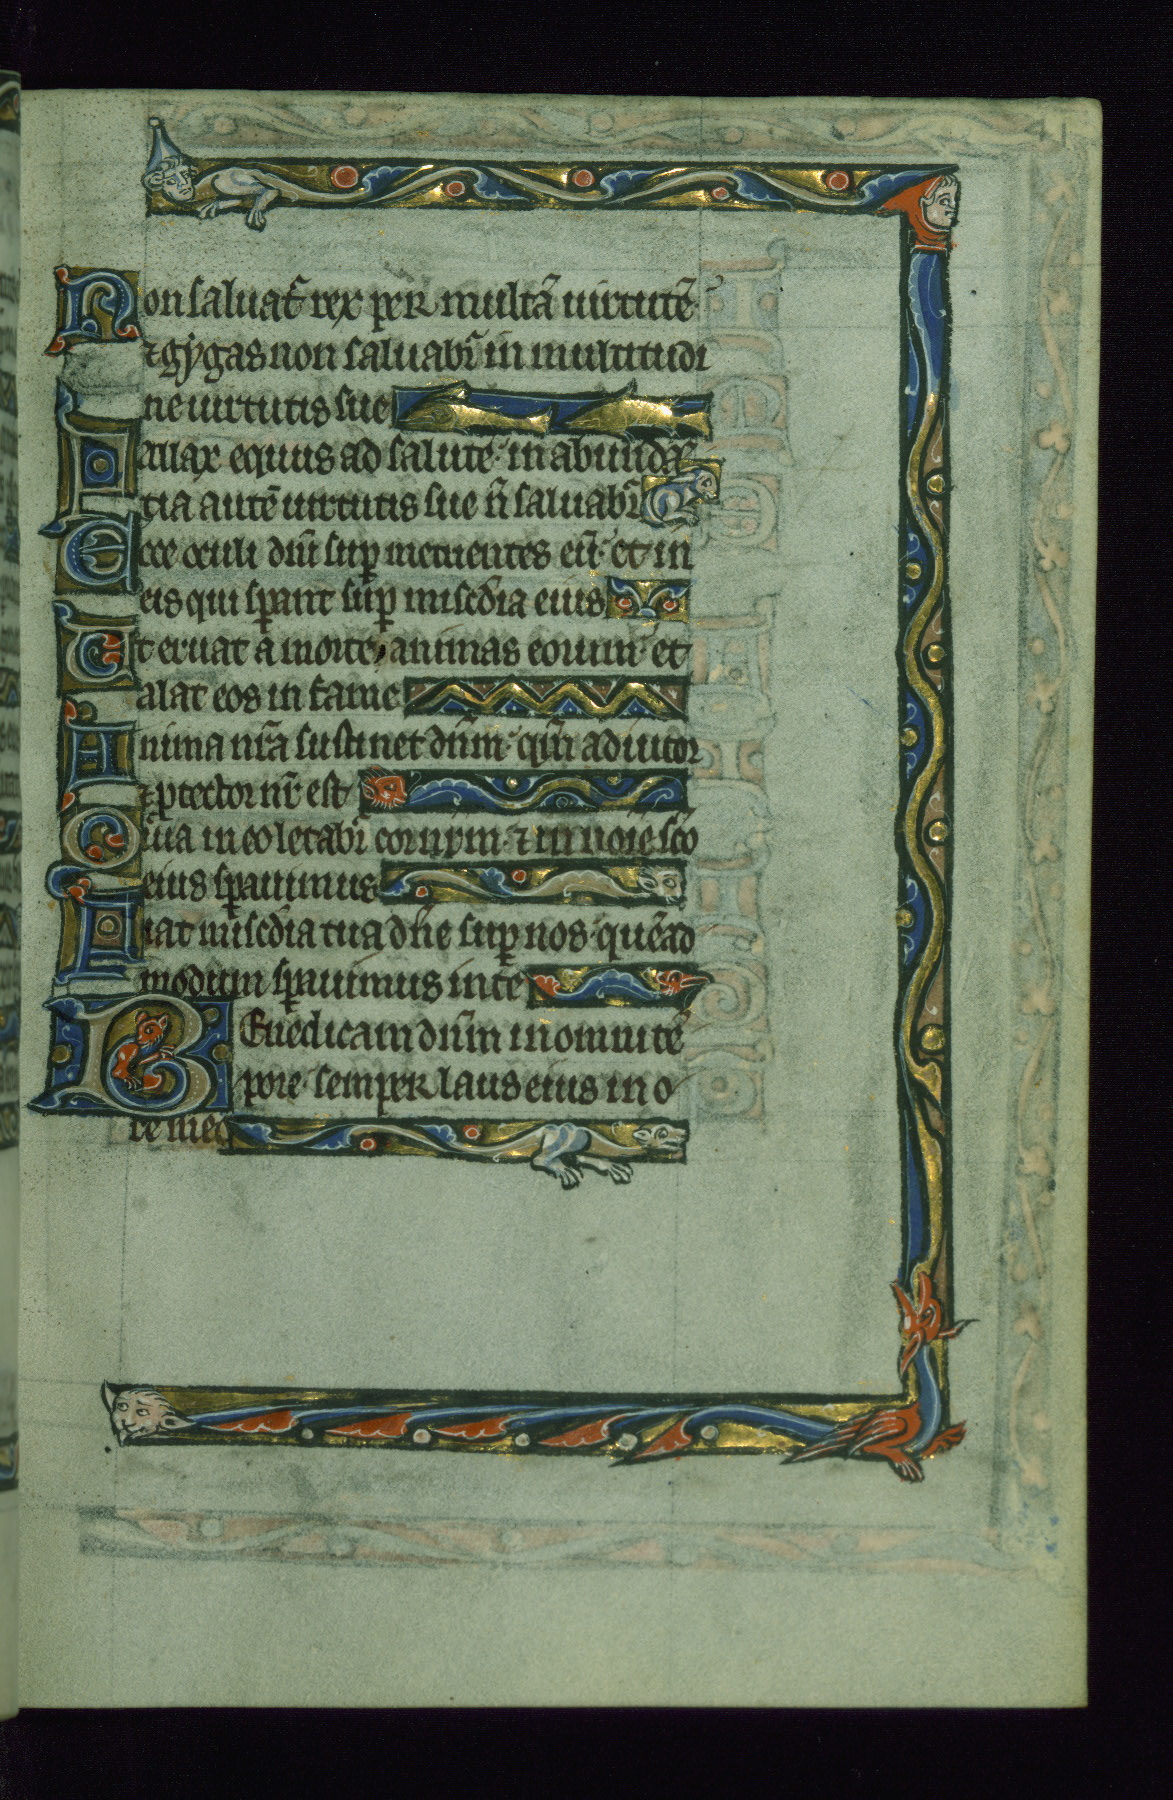 41
Non saluat̃ rex per multã uirtutẽ·
⁊ gygas non saluabit̃ in multitudi
ne uirtutis sue
Fallax equus ad salutẽ· in abundã
tia autẽ uirtutis sue ñ saluabit̃
Ecce oculi dñi sup̱ metuentes eũ· et in
eis qui sp̱ant sup̱ misc̃dia eius
Ut eruat a morte animas eorum· et
alat eos in fame
Anima nr̃a sustinet dñm· qm̃ adiutor
⁊ p̱tector nr̃ est
Quia in eo letabit̃ cor nr̃m· ⁊ in noĩe sc̃o
eius sp̱auimus
Fiat misc̃dia tua dñe sup̱ nos· quẽad
modum sp̱auimus in te
Benedicam dñm in omni tẽ
pore· semper laus eius in o
re meo